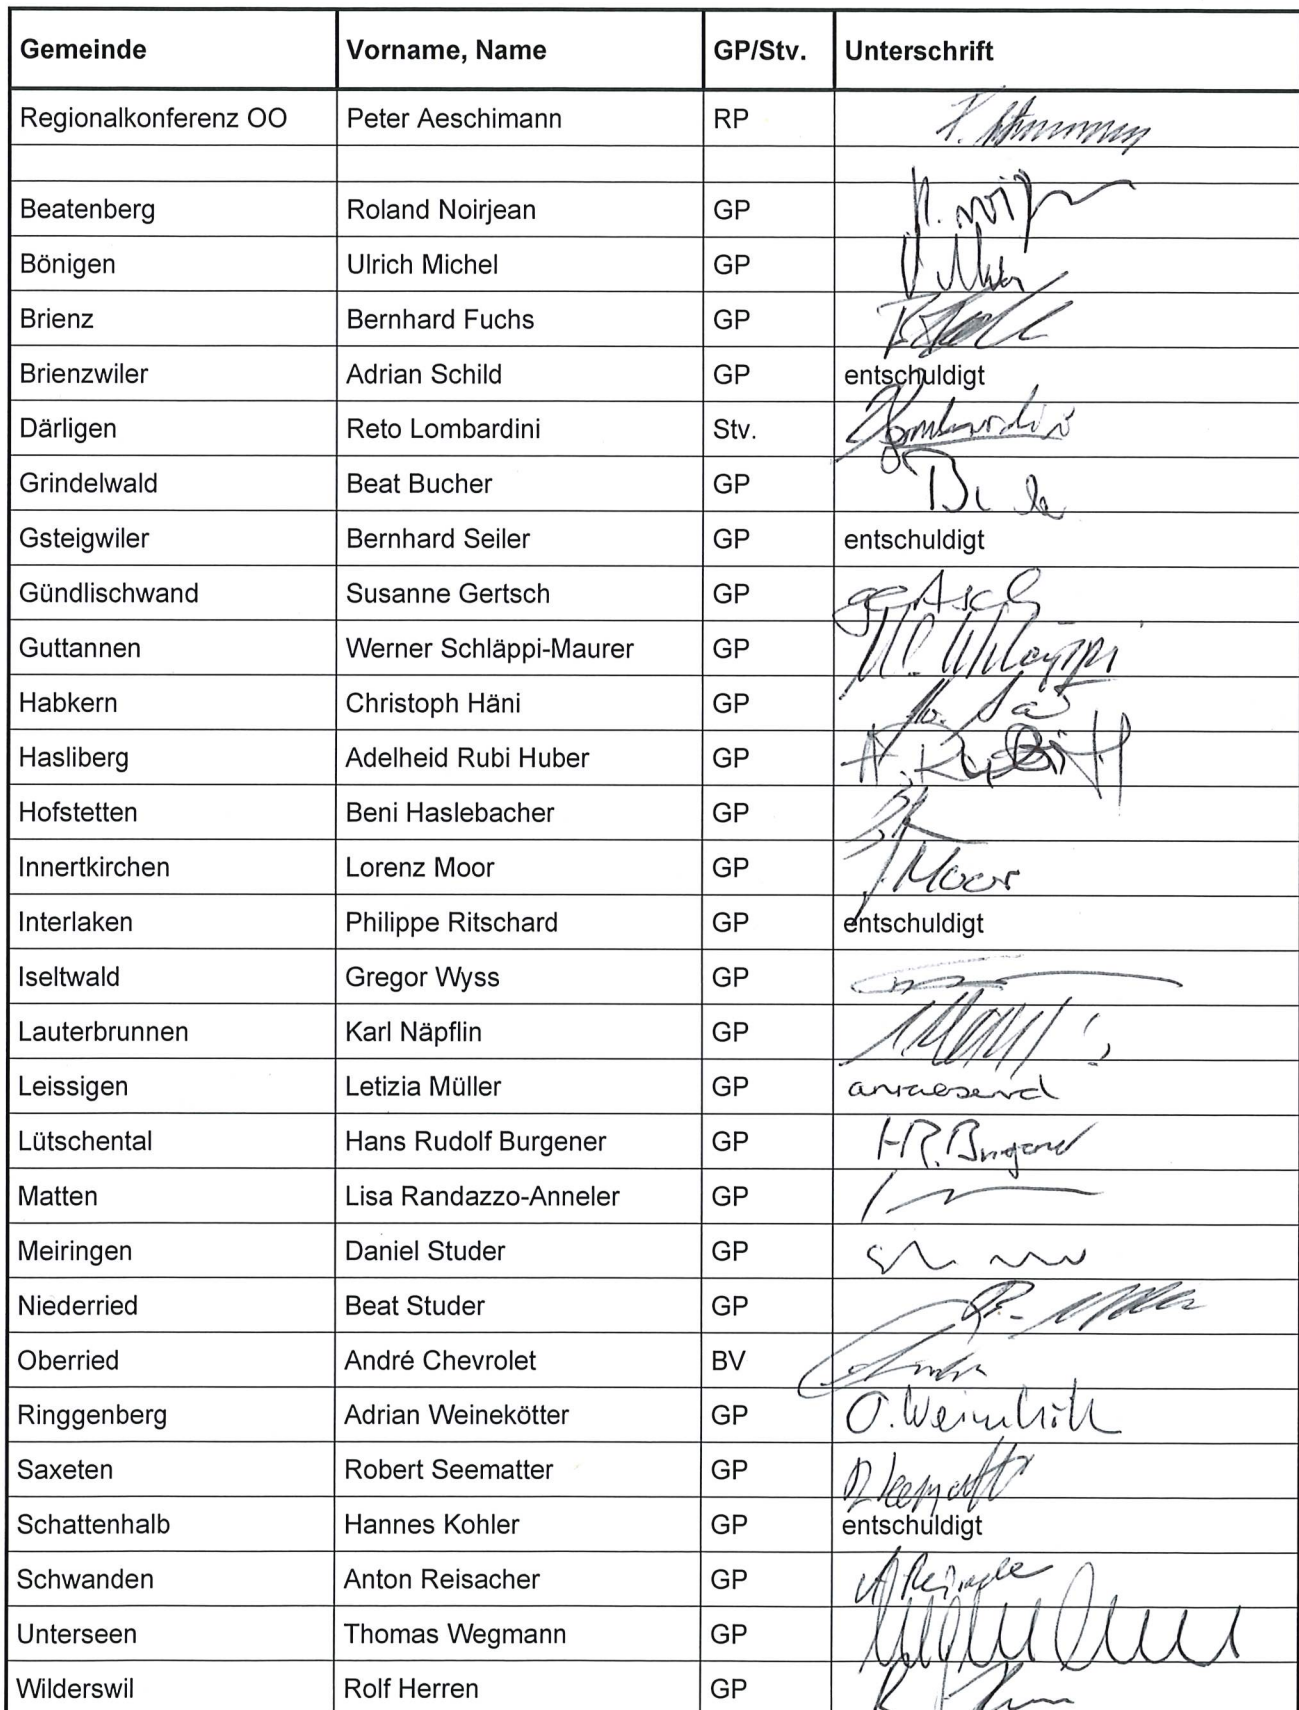 Gemeinde Vorname, Name GP/Stv. Unterschrift
Regionalkonferenz OO Peter Aeschimann RP
Beatenberg Roland Noirjean GP
Bönigen Ulrich Michel GP
Brienz Bernhard Fuchs GP
Brienzwiler Adrian Schild GP entschuldigt
Därligen Reto Lombardini Stv. Lombardini
Grindelwald Beat Bucher GP
Gsteigwiler Bernhard Seiler GP entschuldigt
Gündlischwand Susanne Gertsch GP gertsch
Guttannen Werner Schläppi-Maurer GP W. Schläppi
Habkern Christoph Häni GP
Hasliberg Adelheid Rubi Huber GP
Hofstetten Beni Haslebacher GP
Innertkirchen Lorenz Moor GP Moor
Interlaken Philippe Ritschard GP entschuldigt
Iseltwald Gregor Wyss GP
Lauterbrunnen Karl Näpflin GP
Leissigen Letizia Müller GP anwesend
Lütschental Hans Rudolf Burgener GP HR. Burgener
Matten Lisa Randazzo-Anneler GP
Meiringen Daniel Studer GP
Niederried Beat Studer GP
Oberried André Chevrolet BV
Ringgenberg Adrian Weinekötter GP
Saxeten Robert Seematter GP R Seematter
Schattenhalb Hannes Kohler GP entschuldigt
Schwanden Anton Reisacher GP
Unterseen Thomas Wegmann GP
Wilderswil Rolf Herren GP